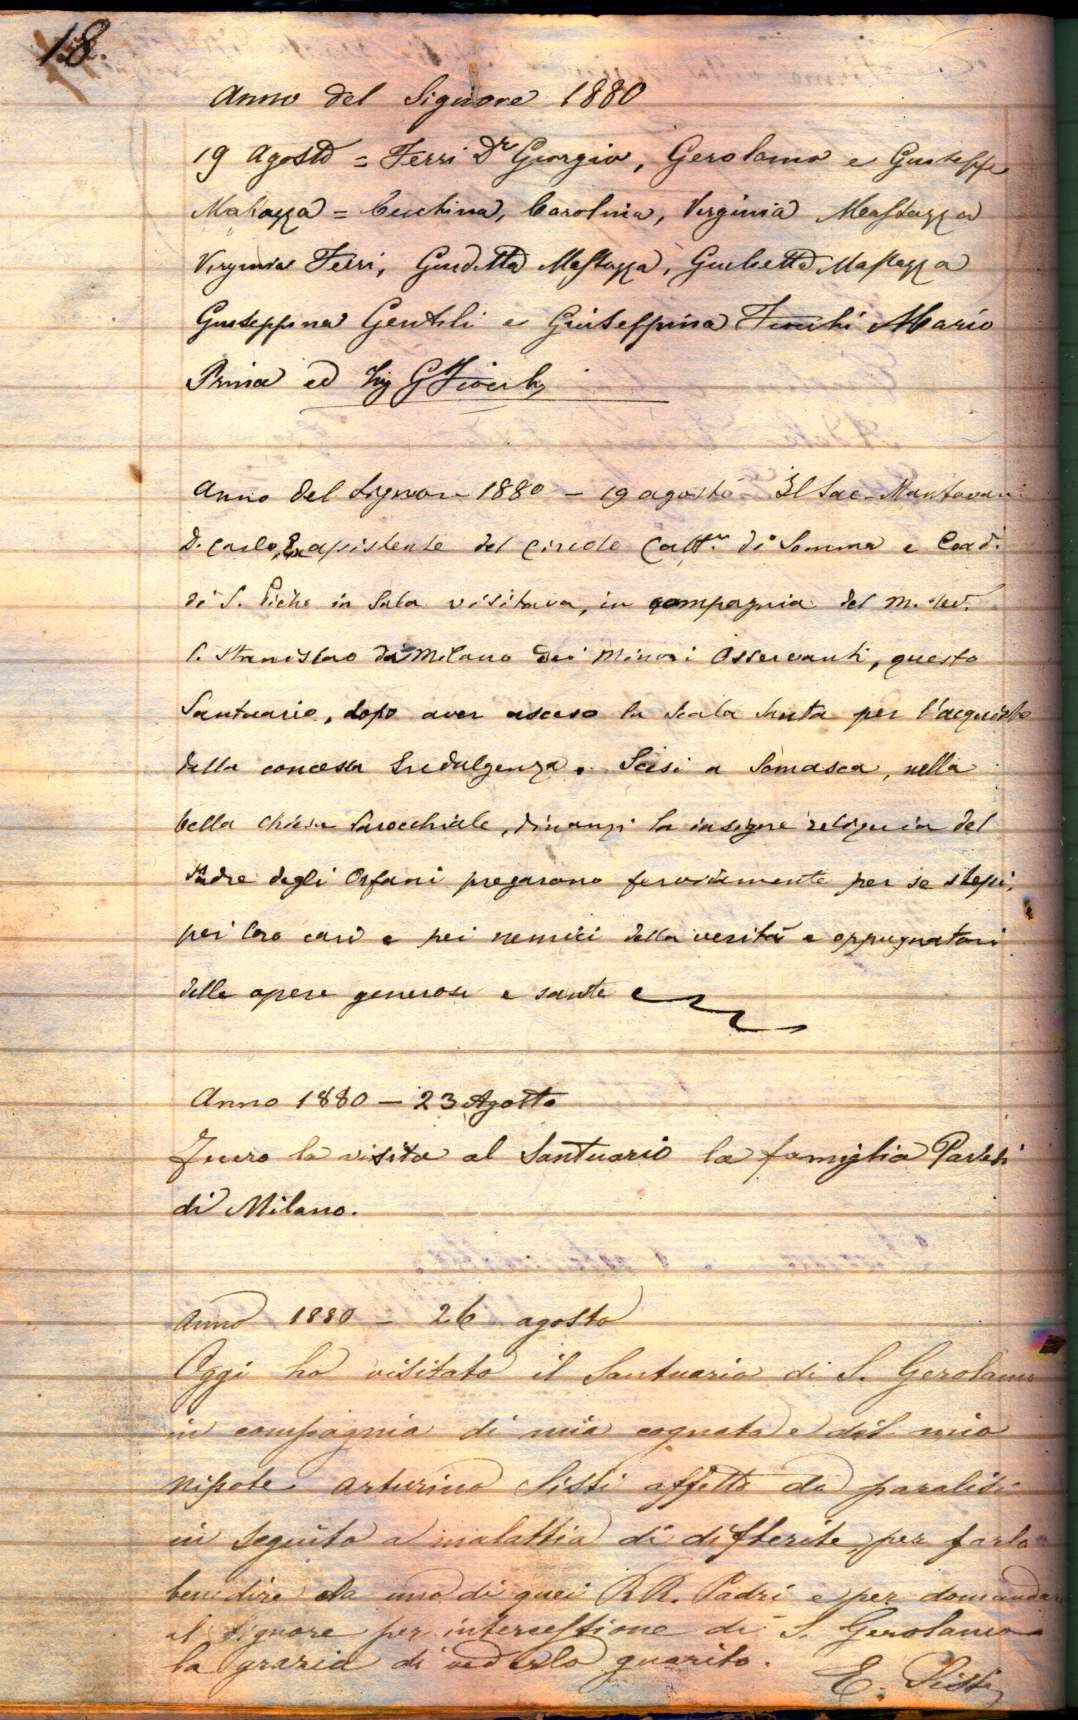 18.
Anno del Signore 1880
19 Agosto = Ferri Dr Giorgio, Gerolamo e Giuseppe
Mastazza = Cecchina, Carolina, Virginia Mastazza
Virginia Ferri, Giuditta Mastazza, Giulietta Mastazza
Giuseppina Gentili e Giuseppina Mario
Prina ed Ing G
Anno del Signore 1880 – 19 agosto Il Sac. Mantovani
D. Carlo, assistente del Circolo Catt.co di Somma e Coad.
di S. in Sala visitava, in compagnia del M. Rev.
P. Stanislao da Milano dei Minori Osservanti, questo
Santuario, dopo aver asceso la Scala Santa per l'acquisto
della concessa Indulgenza. Scesi a Somasca, nella
bella chiesa Parocchiale, dinanzi la insigne reliquia del
Padre degli Orfani pregarono fervidamente per se stessi,
pei loro cari e pei nemici della verità e oppugnatori
delle opere generose e sante
Anno 1880 – 23 Agosto
Fecero la visita al Santuario la famiglia Parisi
di Milano.
Anno 1880 – 26 agosto
Oggi ho visitato il Santuario di S. Gerolamo
in compagnia di mia cognata e del mio
nipote Arturino Sisti affetto da paralisi
in seguito a malattia di difterite, per farlo
benedire da uno di quei RR. Padri e per domandare
al Signore per intercessione di S. Gerolamo
la grazia di vederlo guarito.
E. Sisti